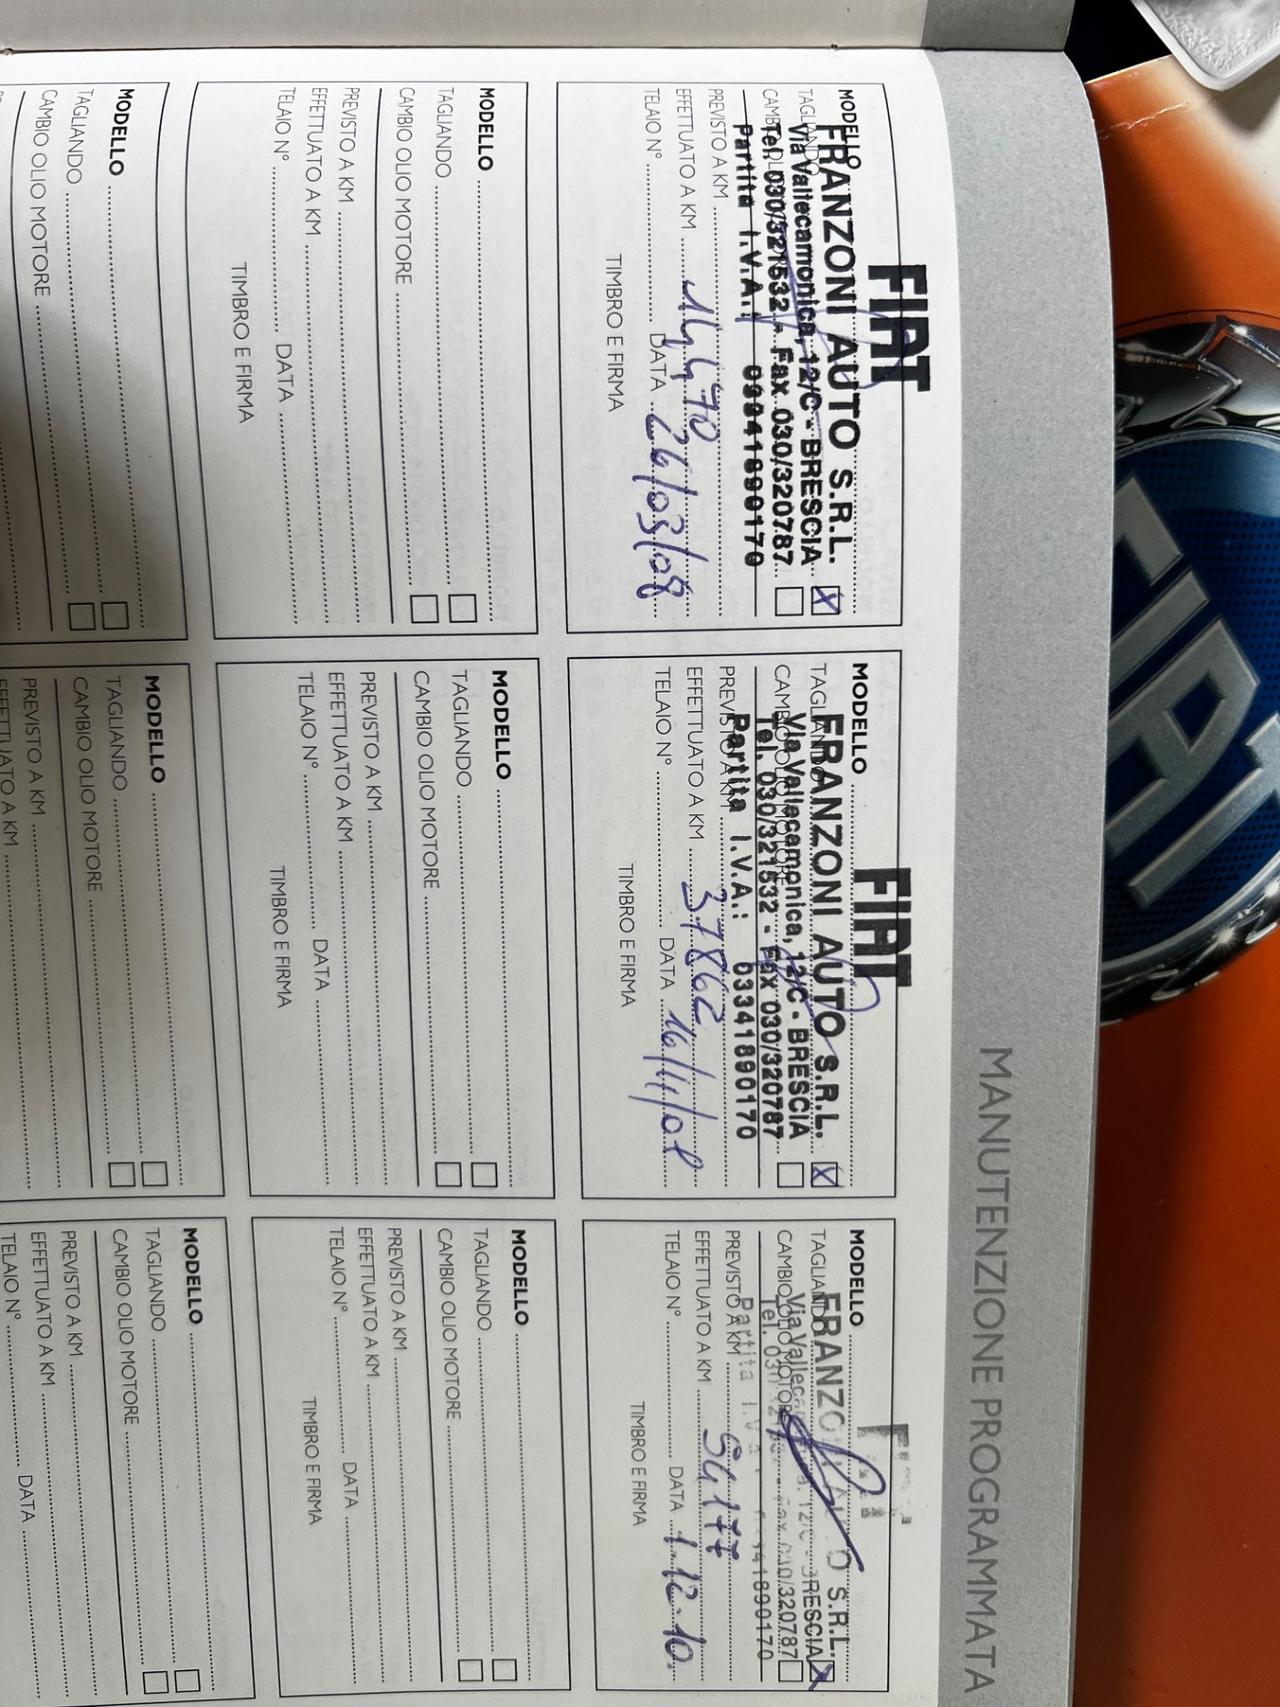 MANUTENZIONE PROGRAMMATA
FIAT
MODELLO
FRANZONI AUTO S.R.L.
TAGLIANDO X
Via Vallecamonica, 12/C - BRESCIA
CAMBIO OLIO MOTORE
Tel. 030/321532 - Fax 030/320787
Partita I.V.A.: 03341890170
PREVISTO A KM
EFFETTUATO A KM 14470
TELAIO N° DATA 26/03/08
TIMBRO E FIRMA
FIAT
MODELLO
FRANZONI AUTO S.R.L.
TAGLIANDO X
Via Vallecamonica, 12/C - BRESCIA
CAMBIO OLIO MOTORE
Tel. 030/321532 - Fax 030/320787
Partita I.V.A.: 03341890170
PREVISTO A KM
EFFETTUATO A KM 37862
TELAIO N° DATA
TIMBRO E FIRMA
MODELLO
FRANZONI AUTO S.R.L.
TAGLIANDO X
Via Vallecamonica, 12/C - BRESCIA
CAMBIO OLIO MOTORE
Tel. 030/321532 - Fax 030/320787
Partita I.V.A.: 03341890170
PREVISTO A KM
EFFETTUATO A KM 54177
TELAIO N° DATA 1.12.10
TIMBRO E FIRMA
MODELLO
TAGLIANDO
CAMBIO OLIO MOTORE
PREVISTO A KM
EFFETTUATO A KM
TELAIO N° DATA
TIMBRO E FIRMA
MODELLO
TAGLIANDO
CAMBIO OLIO MOTORE
PREVISTO A KM
EFFETTUATO A KM
TELAIO N° DATA
TIMBRO E FIRMA
MODELLO
TAGLIANDO
CAMBIO OLIO MOTORE
PREVISTO A KM
EFFETTUATO A KM
TELAIO N° DATA
TIMBRO E FIRMA
MODELLO
TAGLIANDO
CAMBIO OLIO MOTORE
MODELLO
TAGLIANDO
CAMBIO OLIO MOTORE
PREVISTO A KM
EFFETTUATO A KM
MODELLO
TAGLIANDO
CAMBIO OLIO MOTORE
PREVISTO A KM
EFFETTUATO A KM
TELAIO N° DATA
FIAT